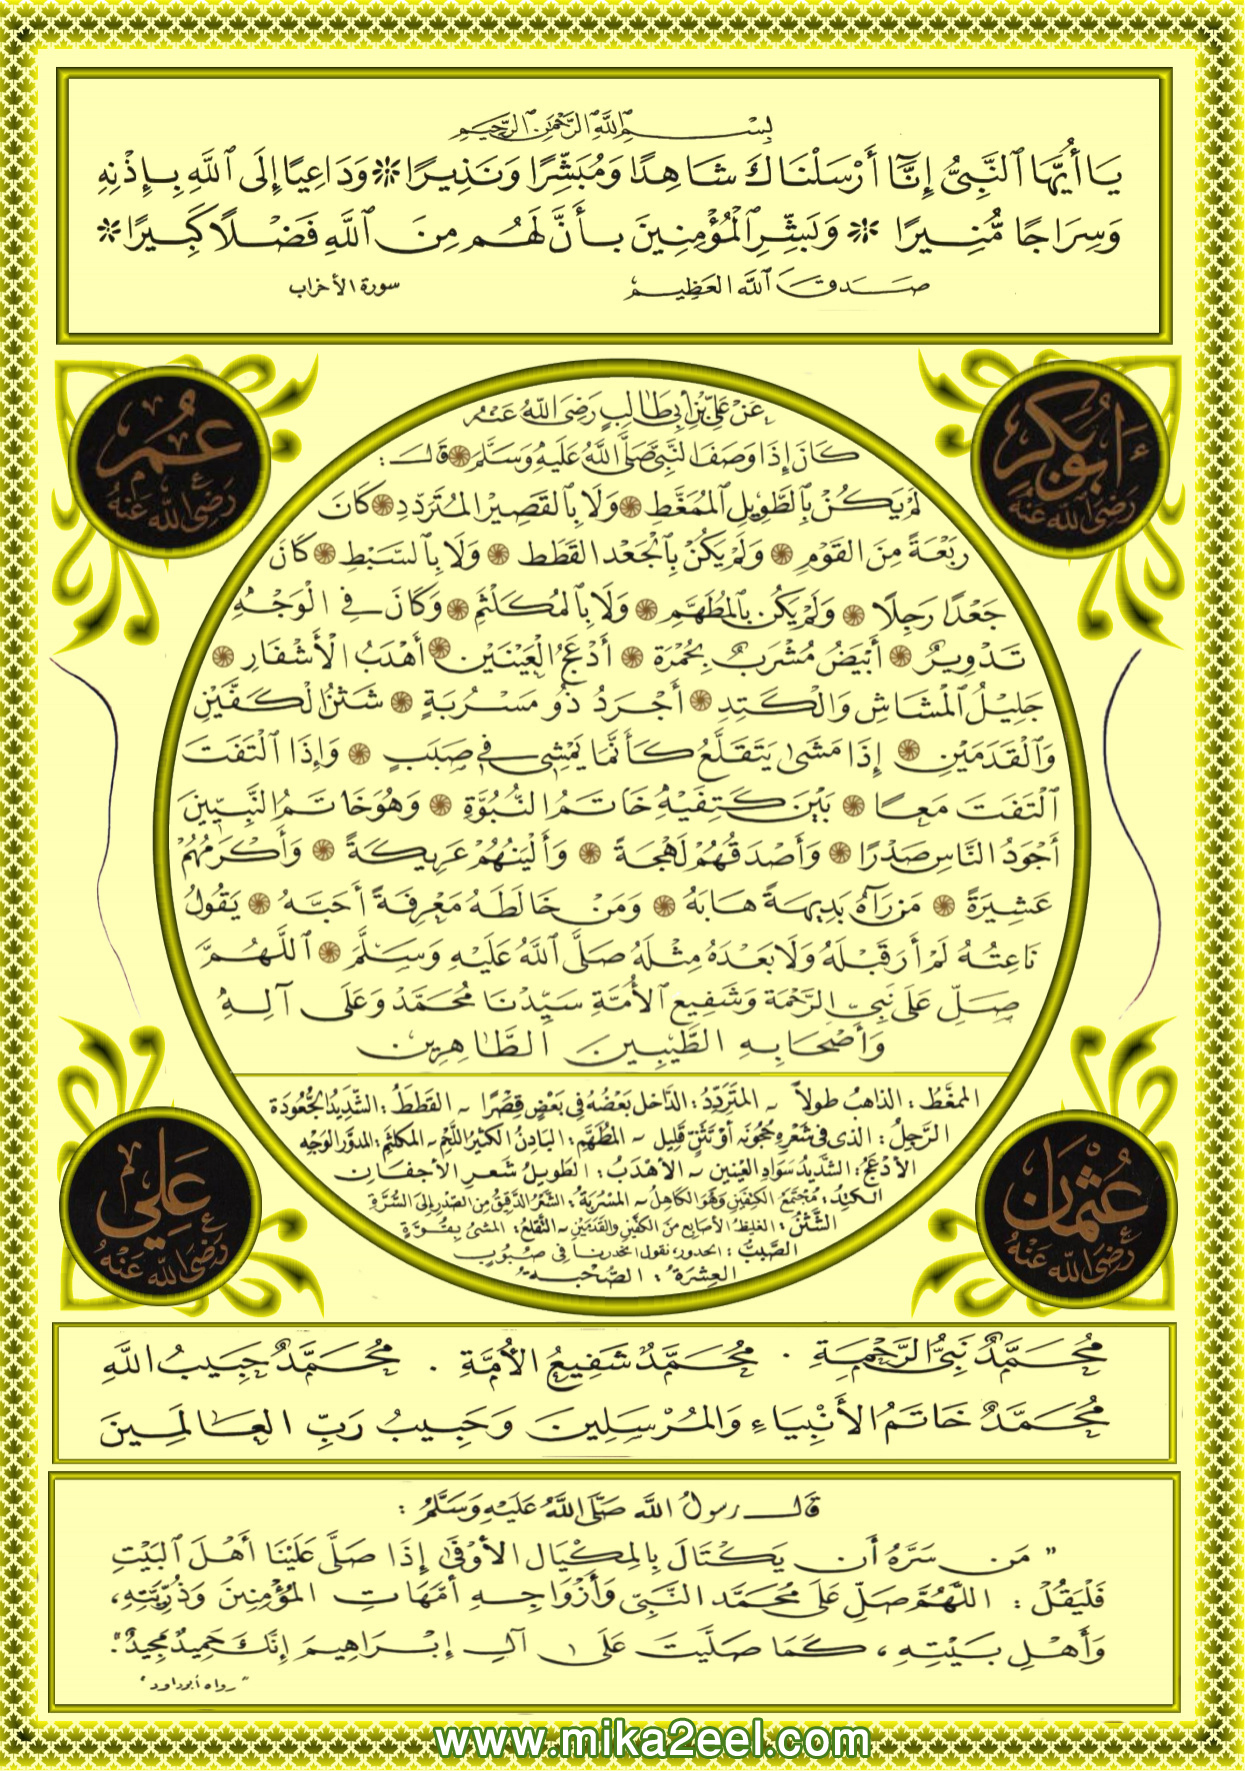 بِسْمِ ٱللَّهِ ٱلرَّحْمَٰنِ ٱلرَّحِيمِ
يَا أَيُّهَا ٱلنَّبِيُّ إِنَّا أَرْسَلْنَاكَ شَاهِدًا وَمُبَشِّرًا وَنَذِيرًا * وَدَاعِيًا إِلَى ٱللَّهِ بِإِذْنِهِ
وَسِرَاجًا مُّنِيرًا * وَبَشِّرِ ٱلْمُؤْمِنِينَ بِأَنَّ لَهُم مِنَ ٱللَّهِ فَضْلًا كَبِيرًا *
صَدَقَ ٱللَّه العَظِيم سورة الأحزاب
أبو بكر رَضِيَ اللَّه عَنْهُ
عُمَر رَضِيَ اللَّه عَنْهُ
عَنْ عَلِيِّ بْنِ أَبِي طَالِبٍ رَضِيَ اللَّهُ عَنْهُ
كَانَ إِذَا وَصَفَ النَّبِيَّ صَلَّى اللَّهُ عَلَيْهِ وَسَلَّمَ قَالَ :
لَمْ يَكُنْ بِالطَّوِيلِ الْمُمَغَّطِ وَلَا بِالقَصِيرِ الْمُتَرَدِّدِ كَانَ
رَبْعَةً مِنَ القَوْمِ وَلَمْ يَكُنْ بِالْجَعْدِ القَطَطِ وَلَا بِالسَّبَطِ كَانَ
جَعْدًا رَجِلًا وَلَمْ يَكُنْ بِالْمُطَهَّمِ وَلَا بِالْمُكَلْثَمِ وَكَانَ فِي الْوَجْهِ
تَدْوِيرٌ أَبْيَضُ مُشْرَبٌ بِحُمْرَةٍ أَدْعَجُ الْعَيْنَيْنِ أَهْدَبُ الْأَشْفَارِ
جَلِيلُ الْمُشَاشِ وَالْكَتِدِ أَجْرَدُ ذُو مَسْرُبَةٍ شَثْنُ الْكَفَّيْنِ
وَالْقَدَمَيْنِ إِذَا مَشَى يَتَقَلَّعُ كَأَنَّمَا يَمْشِي فِي صَبَبٍ وَإِذَا الْتَفَتَ
الْتَفَتَ مَعًا بَيْنَ كَتِفَيْهِ خَاتَمُ النُّبُوَّةِ وَهُوَ خَاتَمُ النَّبِيِّينَ
أَجْوَدُ النَّاسِ صَدْرًا وَأَصْدَقُهُمْ لَهْجَةً وَأَلْيَنُهُمْ عَرِيكَةً وَأَكْرَمُهُمْ
عَشِيرَةً مَنْ رَآهُ بَدِيهَةً هَابَهُ وَمَنْ خَالَطَهُ مَعْرِفَةً أَحَبَّهُ يَقُولُ
نَاعِتُهُ لَمْ أَرَ قَبْلَهُ وَلَا بَعْدَهُ مِثْلَهُ صَلَّى اللَّهُ عَلَيْهِ وَسَلَّمَ اللَّهُمَّ
صَلِّ عَلَى نَبِيِّ الرَّحْمَةِ وَشَفِيعِ الأُمَّةِ سَيِّدِنَا مُحَمَّدٍ وَعَلَى آلِهِ
وَأَصْحَابِهِ الطَّيِّبِينَ الطَّاهِرِين
الممغّطُ : الذاهبُ طولاً - المتَرَدِّدُ : الدَّاخلُ بَعْضُهُ في بَعْضٍ قِصْرًا - القَطَطُ : الشَّدِيدُ الجُعُودَة
الرَّجِلُ : الذي في شَعْرِهِ حُجُونَه أو تَثَنٍّ قَلِيل - المُطَهَّم : البَادِنُ الكثيرُ اللَّحْمِ - المكلثم : المدوَّر الوَجْه
الأَدْعَجُ : الشَّدِيدُ سَوَادِ العَيْنِين - الأَهْدَبُ : الطويلُ شَعَرِ الأجفَان
الكتَدُ : مُجْتَمَعُ الكَتِفَيْنِ وَهُوَ الكَاهِلُ - المَسْرُبَةُ : الشَّعَرُ الدَّقِيقُ مِنَ الصَّدْرِ إلَى السُّرَّةِ
الشَّثْنُ : الغليظُ الأصَابِعِ مِنَ الكَفَّيْنِ والقَدَمَيْنِ - التَّقَلُّعُ : المشيُ بِقُوَّةٍ
الصَّبَبُ : الحدور، نقول انحدرنا في صَبُوبٍ
العِشْرَةُ : الصُّحْبَةُ
عُثْمَان رَضِيَ اللَّه عَنْهُ
عَلِي رَضِيَ اللَّه عَنْهُ
مُحَمَّدٌ نَبِيُّ الرَّحْمَةِ . مُحَمَّدٌ شَفِيعُ الأُمَّةِ . مُحَمَّدٌ حَبِيبُ اللَّهِ
مُحَمَّدٌ خَاتَمُ الأَنْبِيَاءِ وَالمُرْسَلِينَ وَحَبِيبُ رَبِّ العَالَمِينَ
قَالَ رسولُ اللَّه صَلَّى اللَّهُ عَلَيْهِ وَسَلَّمُ :
" مَن سَرَّهُ أَن يَكْتَالَ بِالمِكْيَالِ الأَوْفَى إِذَا صَلَّى عَلَيْنَا أَهْلَ البَيْتِ
فَلْيَقُلْ : اللَّهُمَّ صَلِّ عَلَى مُحَمَّدٍ النَّبِيِّ وَأَزْوَاجِهِ أُمَّهَاتِ المُؤْمِنِينَ وَذُرِّيَّتِهِ،
وَأَهْلِ بَيْتِهِ ، كَمَا صَلَّيْتَ عَلَى آلِ إِبْرَاهِيمَ إِنَّكَ حَمِيدٌ مَجِيدٌ".
"رواه أبو داود"
www.mika2eel.com